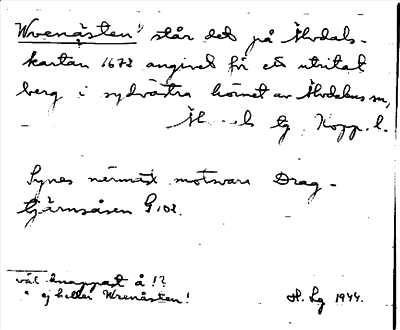 Wrenåsten" står det på Älvdals-
kartan 1672 angivet för ett utritat
berg i sydvästra hörnet av Älvdalens sn,
tg, Kopp. l.
Synes närmast motsvara Drag-
tjärnsåsen G 102.
väl knappast å!?
ej heller Wrenåsten!
H. Lg 1944.